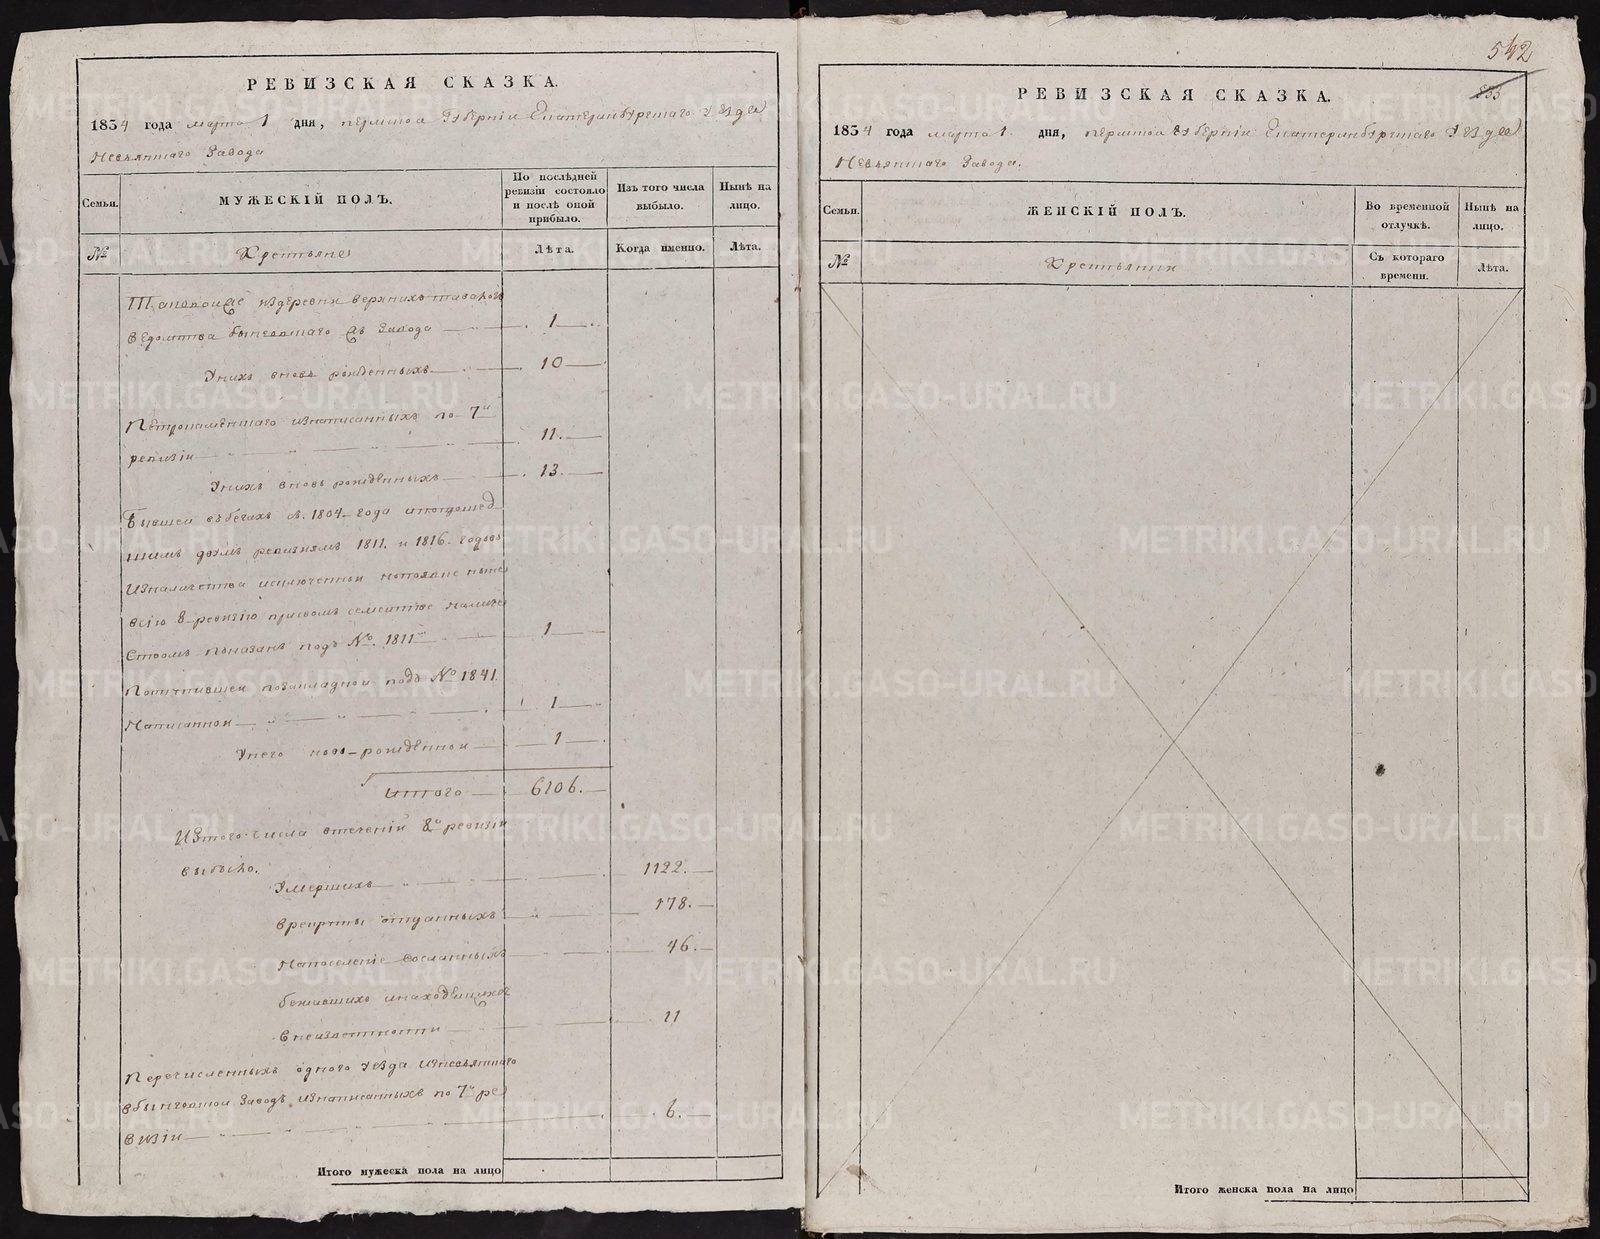 РЕВИЗСКАЯ СКАЗКА.
1834 года марта 1 дня, пермской Губерніи Екатеринбургскаго Уѣзда
Невьянскаго Завода
Семьи.
МУЖЕСКІЙ ПОЛЪ.
По послѣдней ревизіи состояло и послѣ оной прибыло.
Изъ того числа выбыло.
Нынѣ на лицо.
№
Крестьяне
Лѣта.
Когда именно.
Лѣта.
издеревни верхнихъ
ведомства бынговскаго Завода 1
Унихъ вновь рожденныхъ 10
Петрокаменскаго изнаписанныхъ по 7й
ревизіи 11.
Унихъ вновь рожденныхъ 13.
Бывшей въбегахъ съ 1804 года ипопрошед
шимъ двумъ ревизиямъ 1811. и 1816. годовъ
исключенной
сію 8 ревизію семействе
показанъ подъ №. 1811м 1
подъ № 1841.
Написанной 1
Унего ново-рожденной 1
Итого 6106.
Изтого числа втеченіи 8й ревизіи
выбыло.
Умершихъ 1122.
Врекруты отданныхъ 178.
Напоселеніе Сосланныхъ 46.
бежавшихъ инаходящихся
Внеизвестности 11
Перечисленныхъ одного Уезда изневьянскаго
вбынговской Заводъ изнаписанныхъ по 7й ре
визіи 6.
Итого мужеска пола на лицо
542
253
РЕВИЗСКАЯ СКАЗКА.
1834 года марта 1. дня, пермской Губерніи Екатеринбургскаго Уѣзда
Невьянскаго Завода.
Семьи.
ЖЕНСКІЙ ПОЛЪ.
Во временной отлучкѣ.
Нынѣ на лицо.
№
Крестьянки
Съ котораго времени.
Лѣта.
Итого женска пола на лицо
METRIKI.GASO-URAL.RU